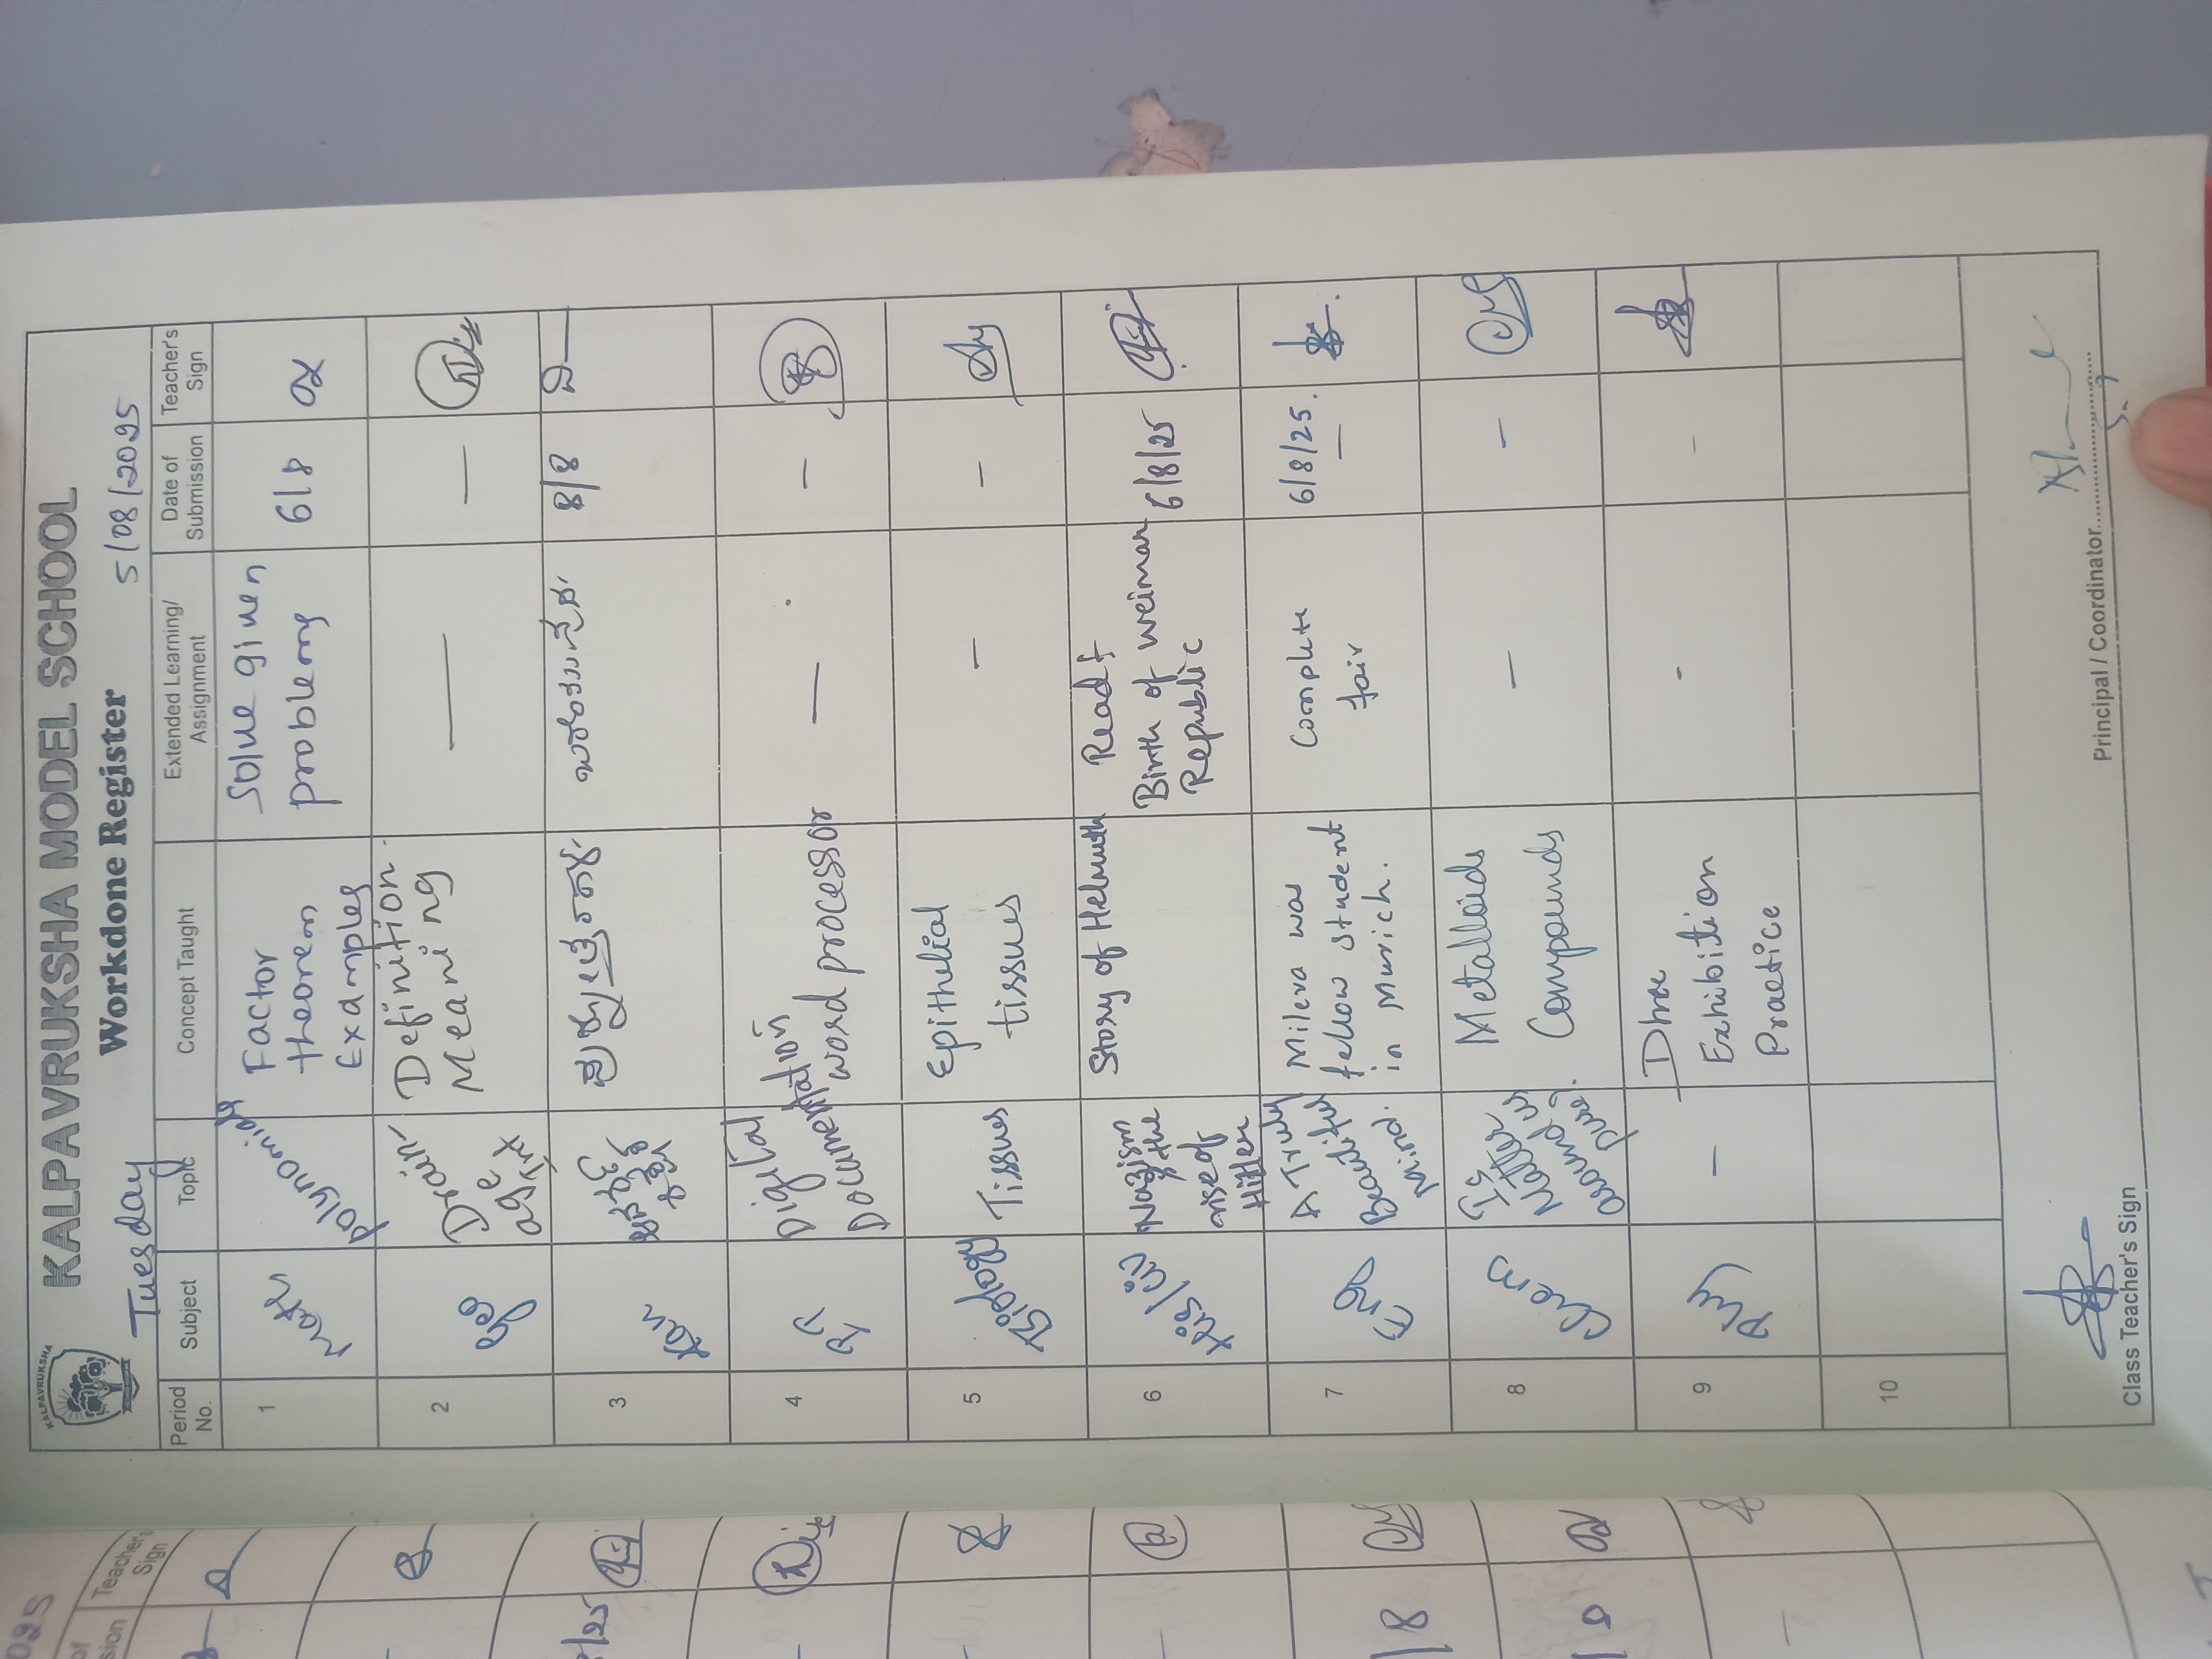 KALPAVRUKSHA
KALPAVRUKSHA MODEL SCHOOL
Workdone Register
Tuesday 5/08/2025
Period No. Subject Topic Concept Taught Extended Learning/ Assignment Date of Submission Teacher's Sign
1 Maths polynomials Factor theorem Examples Solve given problems 6/8
2 Geo Drainage Definition. Meaning —
3 Kan 8/8
4 Digital Documentation word processor — —
5 Biology Tissues Epithelial tissues — —
6 His/Civ Nazism & the rise of Hitler Story of Helmuth Read & Birth of weimar Republic 6/8/25
7 Eng A Truly Beautiful Mind. Mileva was fellow student in Munich. Complete fair 6/8/25.
8 Chem Is Matter around us pure? Metalloids Compounds — —
9 Phy — Exhibition Practice - -
10
Class Teacher's Sign Principal / Coordinator
Teacher's Sign